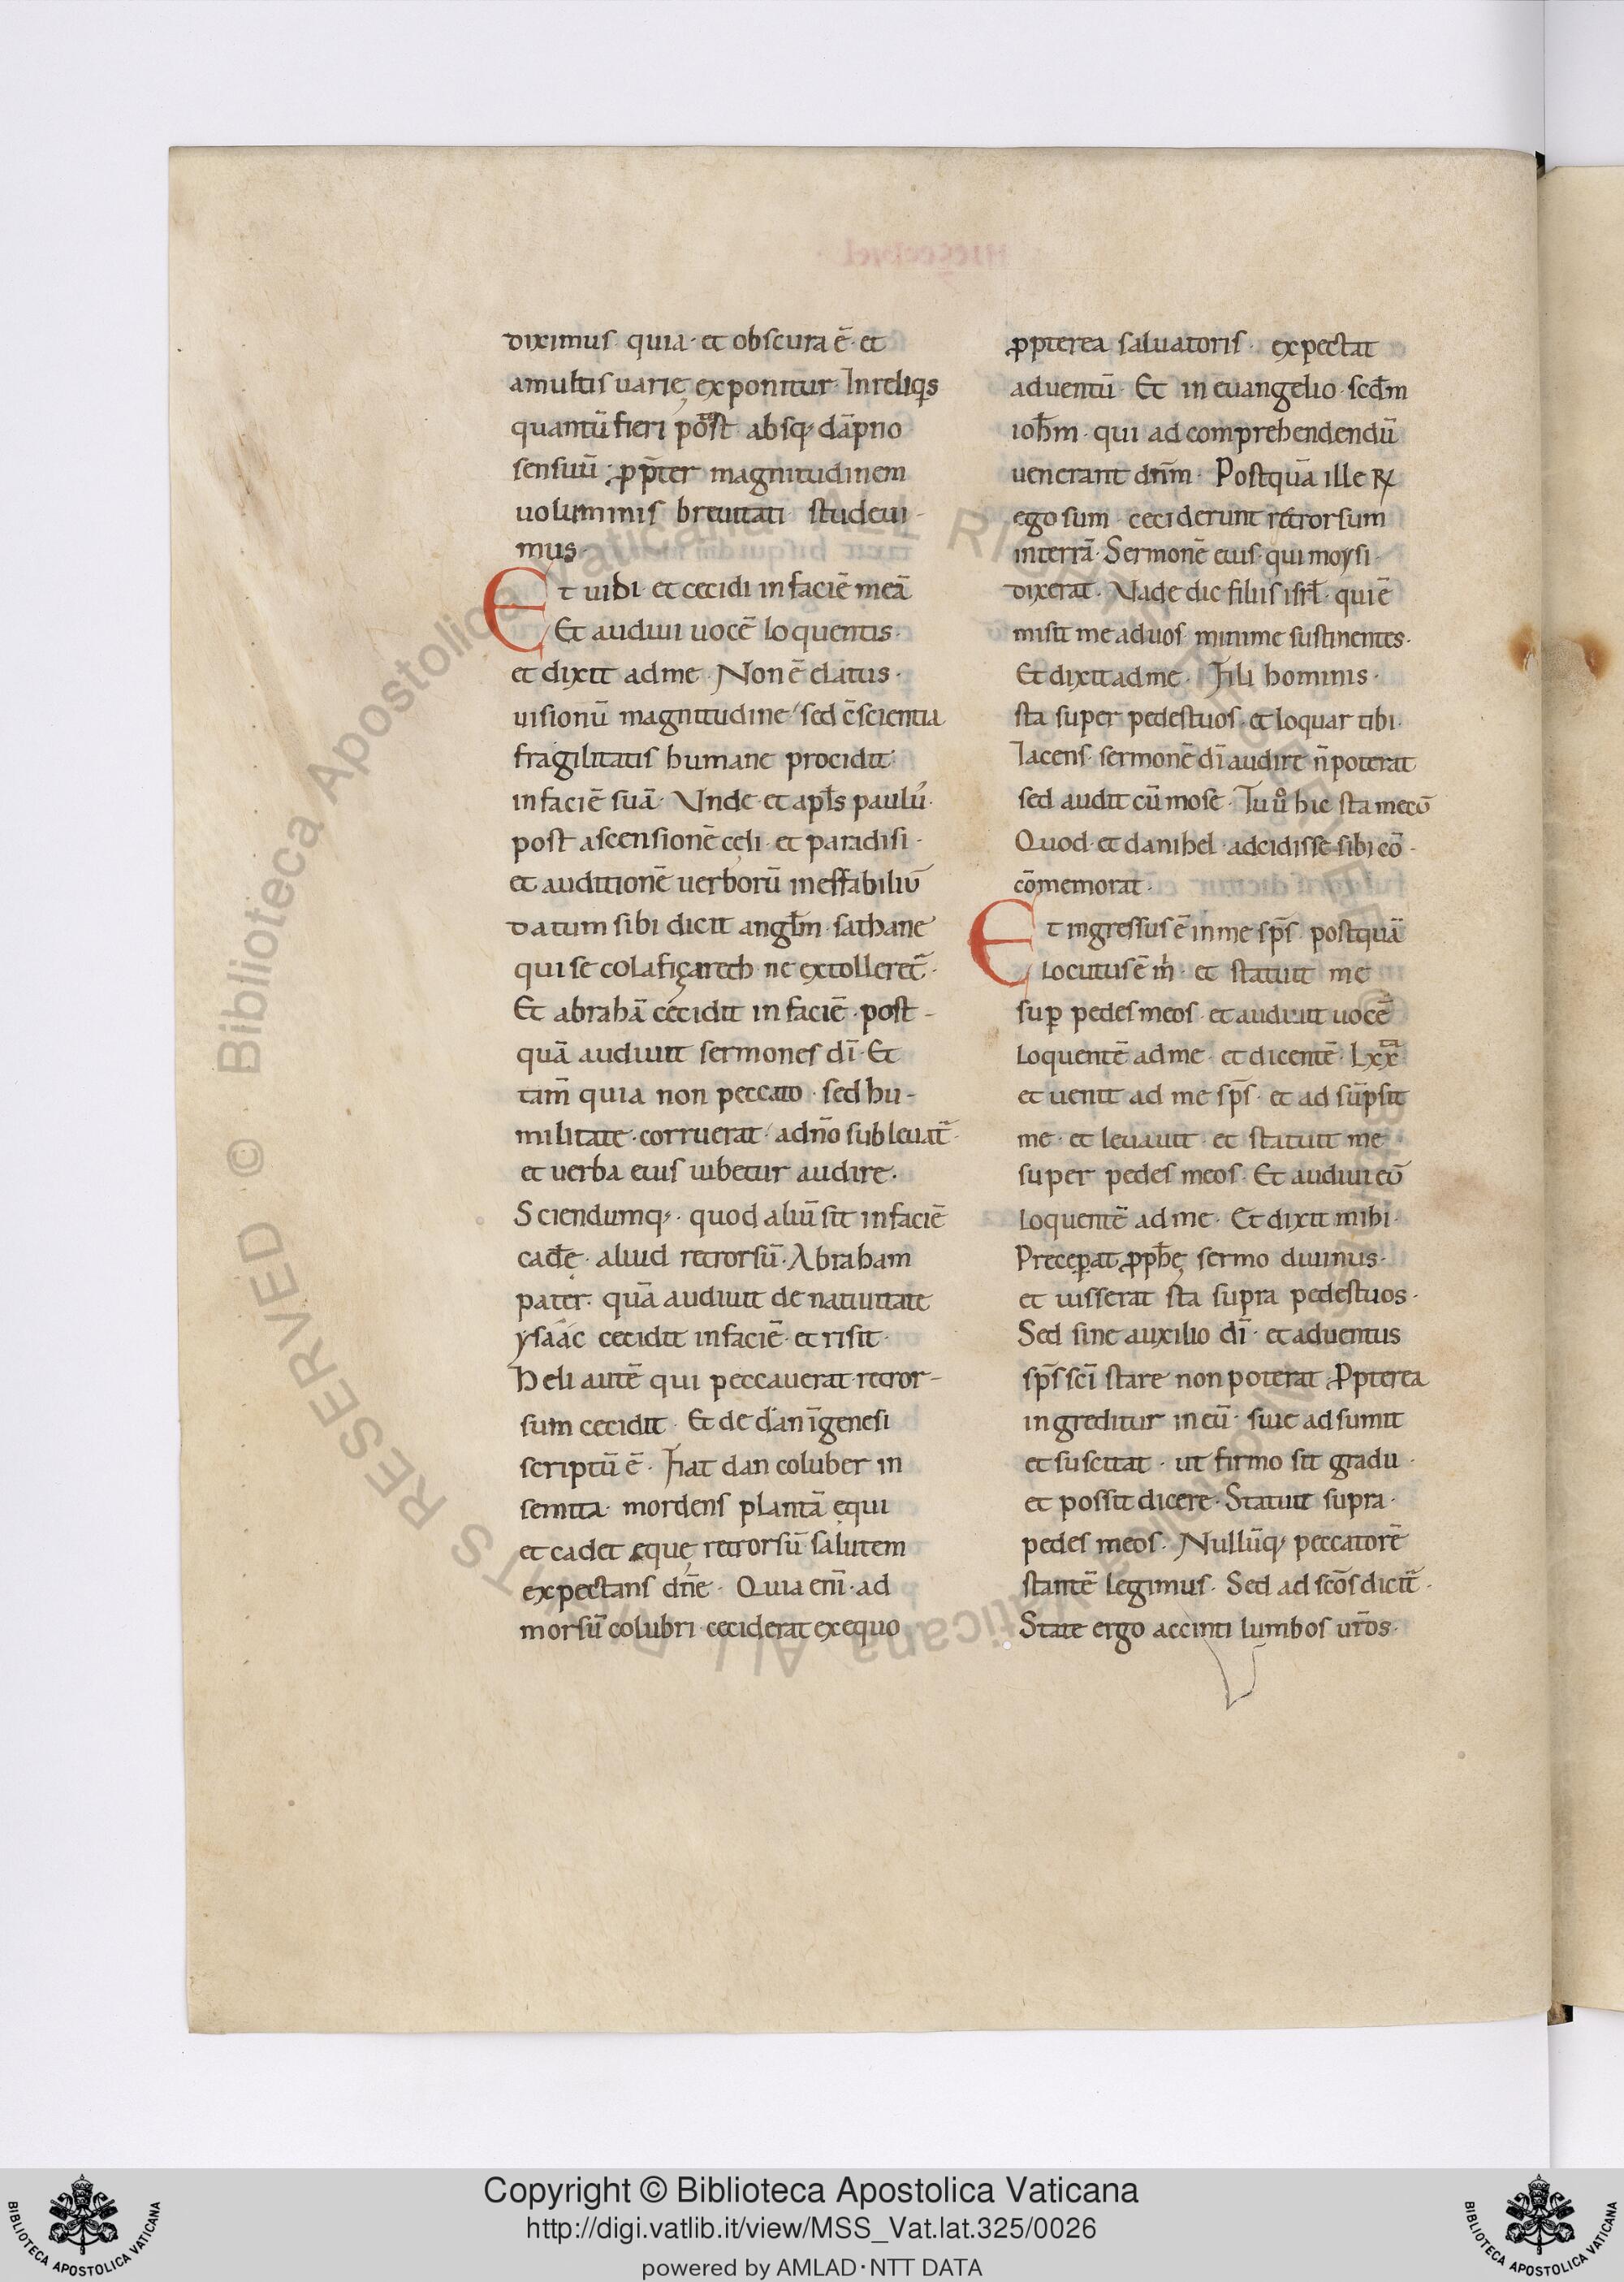 diximus· quia· et obscura ē· et
amultis uarie exponitur· Inreliq̨s
quantū fieri pōst absq; dāpno
sensuū· ꝓpter magnitudinem
uoluminis breuitati studeui-
mus·
Et uidi· et cecidi in faciē meā
Et audiui uocē loquentis·
et dixit adme· Non ē elatus·
uisionū magnitudine sed c̄scientia
fragilitatis humane procidit
in faciē suā· Vnde· et apl̄s paulū·
post ascensionē cęli· et paradisi·
et auditionē uerborū ineffabiliū
datum sibi dicit angl̄m· sathane
qui se colafiçarech· ne extolleret̄·
Et abrahā cecidit in faciē· post-
quā audiuit sermones dī· Et
tam̄ quia non peccato· sed hu-
militate· corruerat· adn̄o subleuat̄·
et uerba eius iubetur audire·
Sciendumq;· quod aliū sit in faciē
cadę· aliud retrorsū· Abraham
pater· quā audiuit de natiuitate
ysaac cecidit infaciē· et risit·
Heli autē qui peccauerat· retror-
sum cecidit· Et de dan īgenesi
scriptū ē· Fiat dan coluber in
semita· mordens plantā equi
et cadet eque retrorsū salutem
expectans dn̄e· Quia enī· ad
morsū colubri· ceciderat exequo
ꝓpterea saluatoris· expectat
aduentū· Et in euangelio· scd̄m
ioh̄m· qui ad comprehendendū
uenerant dn̄m· Postquā ille ꝶ
ego sum· ceciderunt retrorsum
interrā· Sermonē eius· qui moysi·
dixerat· Vade dic filiis isrl̄· qui ē
misit me aduos· minime sustinentes·
Et dixit adme· Fili hominis·
sta super pedestuos· et loquar tibi·
Iacens· sermonē dī audire n̄ poterat
sed audit cū mose· Tu ū hic sta mecū
Quod· et danihel· adcidisse sibi eō·
cōmemorat·
Et ingressus ē inme sp̄s· postquā
locutus ē m̄· et statuit me
suꝑ pedes meos· et audiuit uocē
loquentē adme· et dicentē· Lxx̄
et uenit ad me sp̄s· et ad sūpsit
me· et leuauit· et statuit me·
super pedes meos· Et audiui eū
loquentē ad me· Et dixit mihi·
Preceꝑat ꝓph̄ę sermo diuinus·
et iusserat sta supra pedestuos·
Sed sine auxilio dī· et aduentus
sp̄s sc̄i stare non poterat· Ꝓpterea
ingreditur in eū· siue ad sumit
et suscitat· ut firmo sit gradu·
et possit dicere· Statuit supra·
pedes meos· Nullūq; peccatorē
stantē legimus· Sed ad sc̄os dicit̄·
State ergo accinti lumbos ur̄os·
Copyright © Biblioteca Apostolica Vaticana
http://digi.vatlib.it/view/MSS_Vat.lat.325/0026
powered by AMLAD·NTT DATA